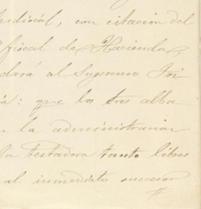 judicial, con citación del
fiscal de Hacienda,
dará al Supremo Tri
que los tres alba
la administración
la testadora tanto libres
al inmediato sucesor